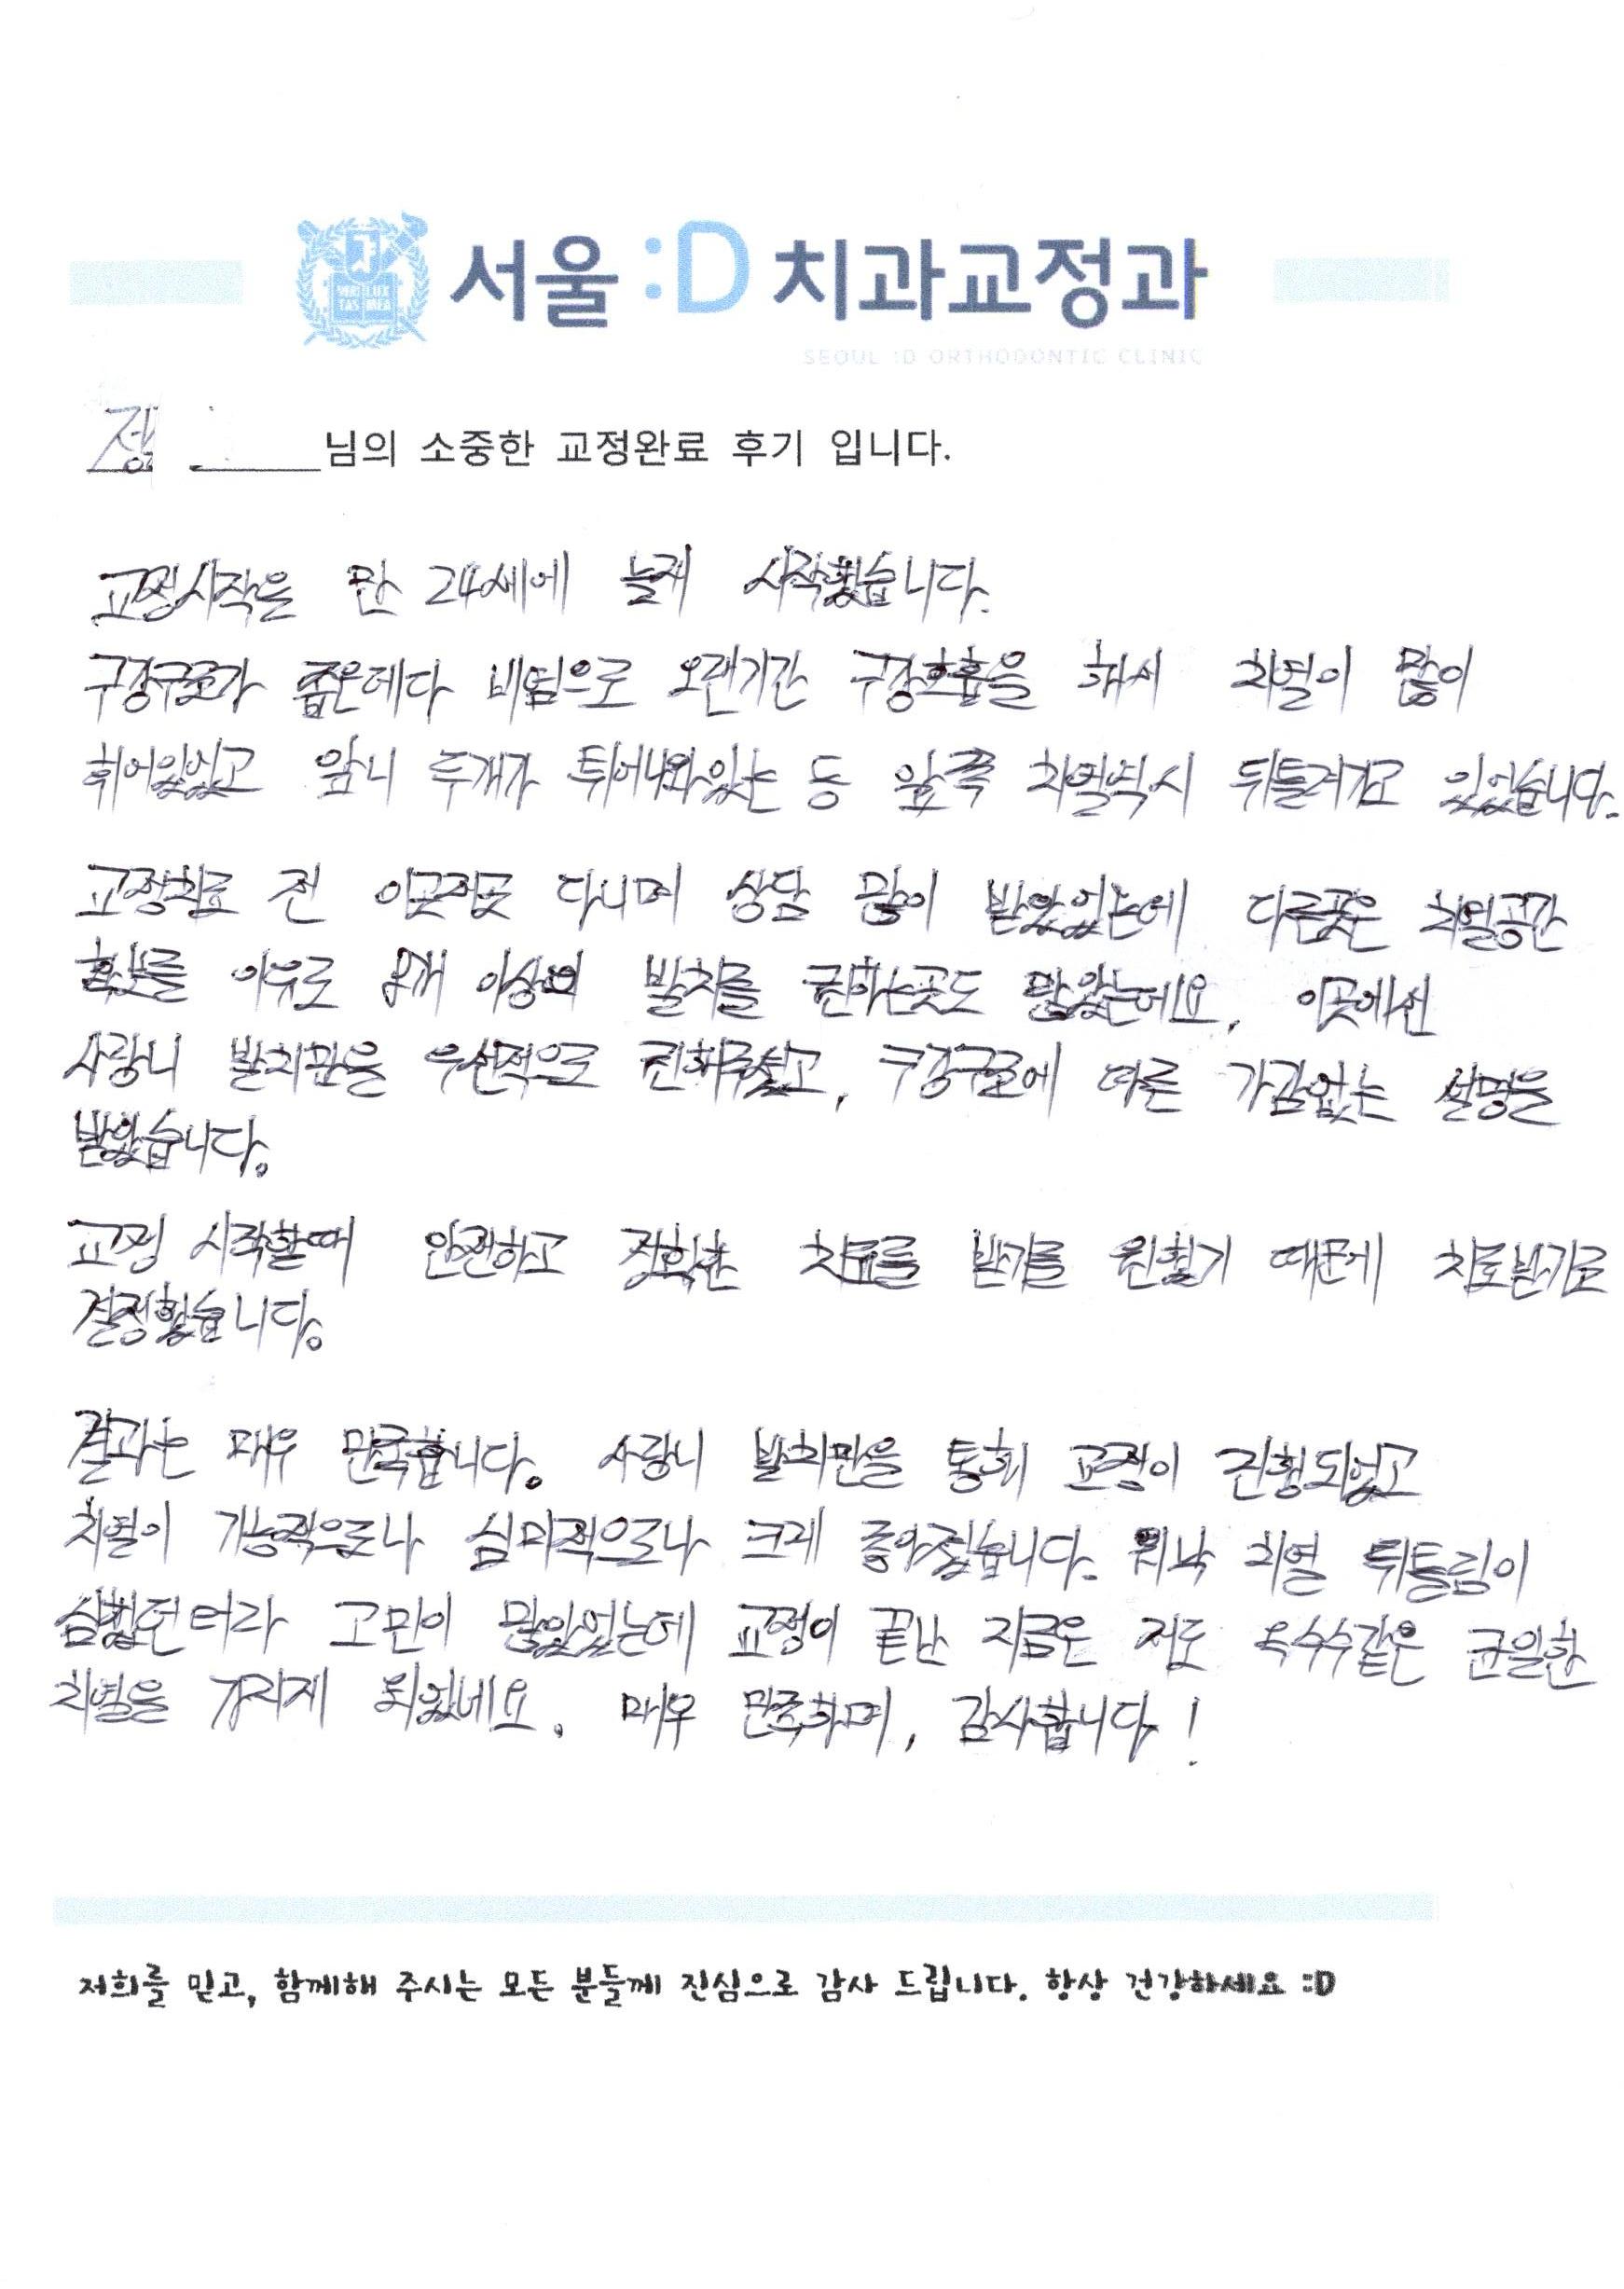 VERI LUX
TAS MEA
서울 :D 치과교정과
SEOUL :D ORTHODONTIC CLINIC
정 님의 소중한 교정완료 후기 입니다.
교정시작을 만 24세에 늦게 시작했습니다.
구강구조가 좁은데다 비염으로 오랜기간 구강호흡을 해서 치열이 많이
휘어있었고 앞니 두개가 튀어나와있는 등 앞쪽 치열역시 뒤틀려지고 있었습니다.
교정치료 전 이곳저곳 다니며 상담 많이 받았었는데 다른곳은 치열공간
확보를 이유로 2개 이상의 발치를 권하는곳도 많았는데요, 이곳에선
사랑니 발치만을 우선적으로 권해주셨고, 구강구조에 따른 가감없는 설명을
받았습니다.
교정 시작할때 안전하고 정확한 치료를 받기를 원했기 때문에 치료받기로
결정했습니다.
결과는 매우 만족합니다. 사랑니 발치만을 통해 교정이 진행되었고
치열이 기능적으로나 심미적으로나 크게 좋아졌습니다. 워낙 치열 뒤틀림이
심했던터라 고민이 많았었는데 교정이 끝난 지금은 저도 옥수수같은 균일한
치열을 가지게 되었네요. 매우 만족하며, 감사합니다!
저희를 믿고, 함께해 주시는 모든 분들께 진심으로 감사 드립니다. 항상 건강하세요 :D